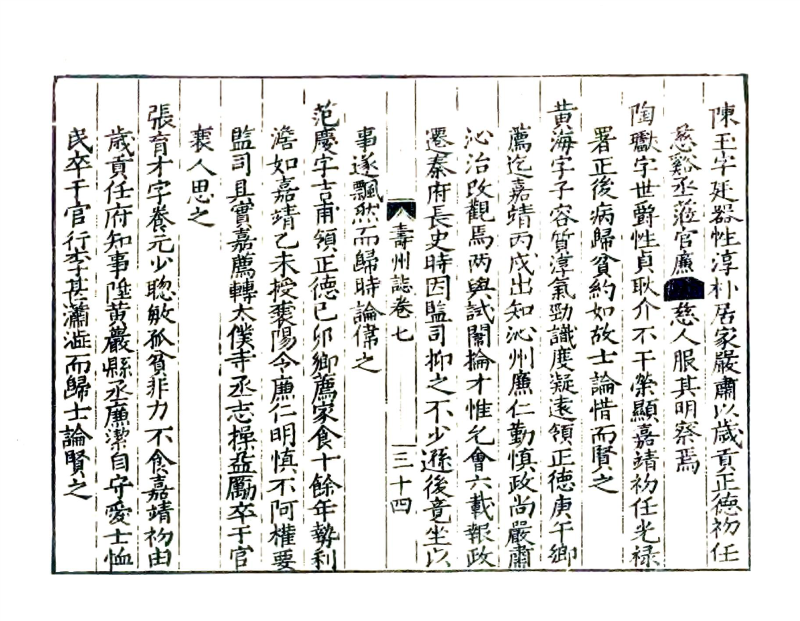 陳玉字廷器性淳朴居家嚴肅以歲貢正德初任
慈谿丞蒞官廉慈人服其明察焉
陶瓛字世爵性貞耿介不干榮顯嘉靖初任光祿
署正後病歸貧約如故士論惜而賢之
黃海字子容質淳氣勁識度凝遠領正德庚午鄉
薦迄嘉靖丙戌出知沁州廉仁勤慎政尚嚴肅
沁治改觀焉两與試闈掄才惟允會六載報政
遷秦府長史時因監司抑之不少遜後竟坐以
事遂飄然而歸時論偉之
壽州誌卷七
三十四
范慶字吉甫領正德己卯鄉薦家食十餘年勢利
澹如嘉靖乙未授襄陽令廉仁明慎不阿權要
監司具實嘉薦轉太僕寺丞志操益勵卒于官
襄人思之
張育才字養元少聰敏孤貧非力不食嘉靖初由
歲貢任府知事陞黃巖縣丞廉潔自守愛士恤
民卒于官行李甚瀟澁而歸士論賢之